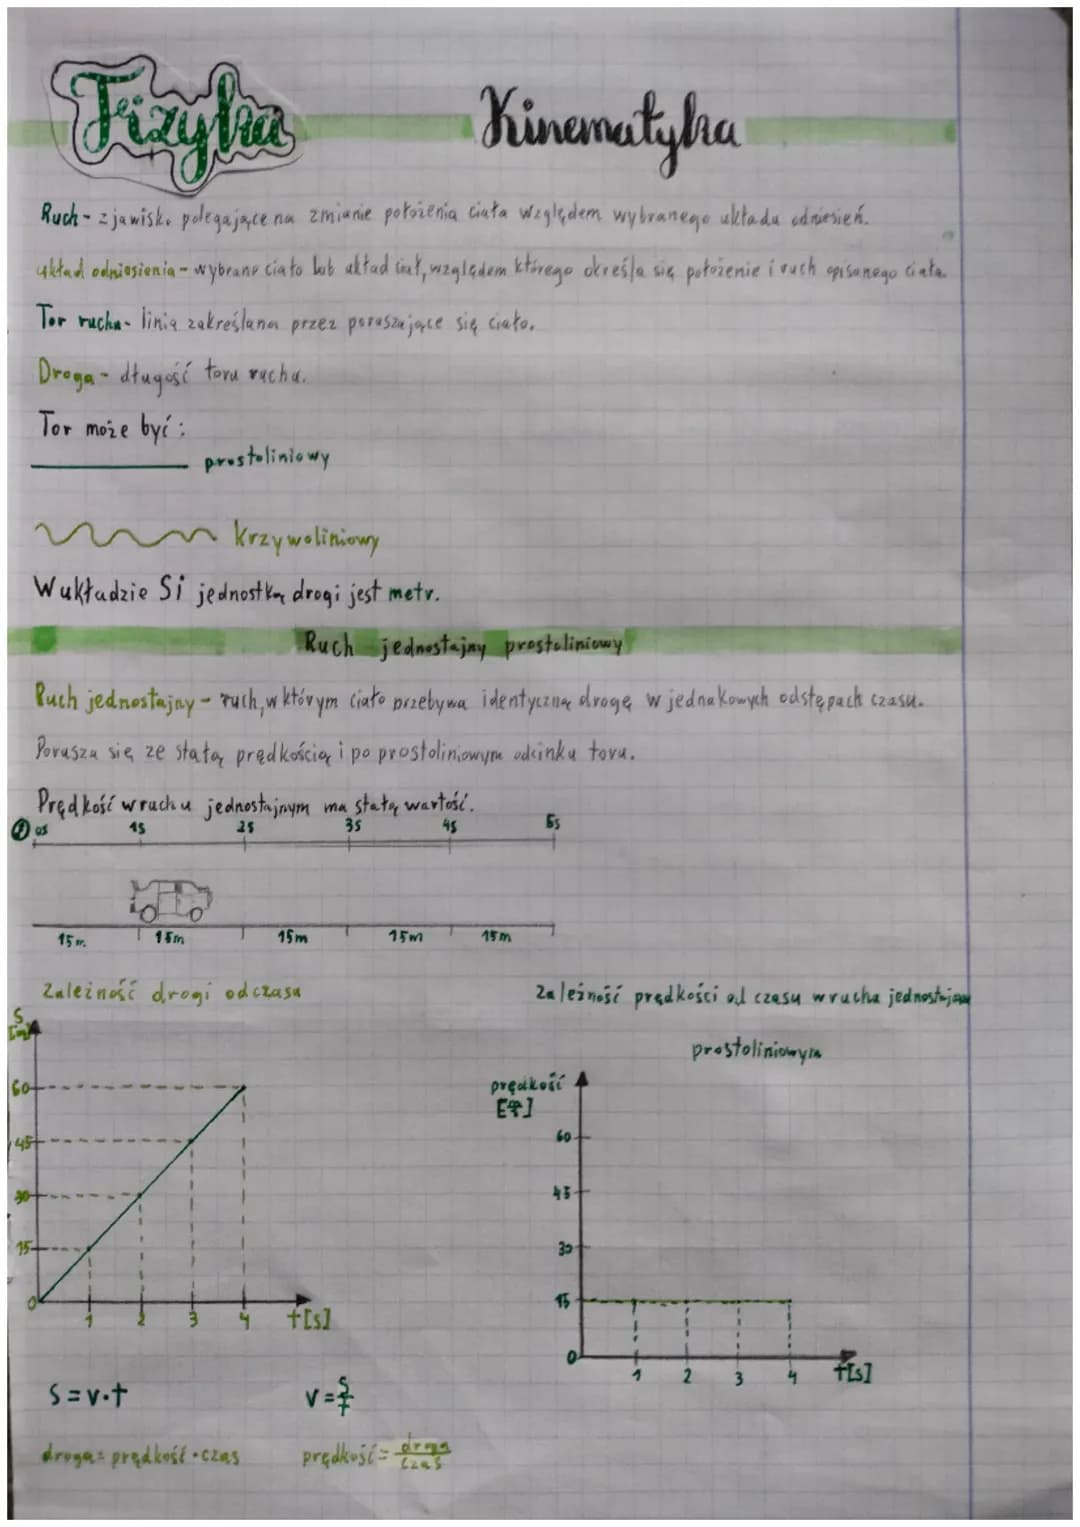 Fizyka
Kinematyka
Ruch - zjawisko polegające na zmianie położenia ciała względem wybranego układu odniesień.
układ odniesienia - wybrane ciało lub układ ciał, względem którego określa się położenie i ruch opisanego ciała.
Tor ruchu - linia zakreślana przez poruszające się ciało.
Droga - długość toru ruchu.
Tor może być:
prostoliniowy
Krzywoliniowy
W układzie Si jednostką drogi jest metr.
Ruch jednostajny prostoliniowy
Ruch jednostajny - ruch, w którym ciało przebywa identyczną drogę w jednakowych odstępach czasu.
Porusza się ze stałą prędkością i po prostoliniowym odcinku toru.
Prędkość w ruchu jednostajnym ma stałą wartość.
0s 1s 2s 3s 4s 5s
15m 15m 15m 15m 15m
Zależność drogi od czasu
S
[m]
60
45
30
15
0
1 2 3 4 t[s]
Zależność prędkości od czasu w ruchu jednostajnym
prostoliniowym
prędkość
60
45
30
15
0
1 2 3 4 t[s]
S = v·t
v = s/t
droga = prędkość · czas
prędkość = droga/czas